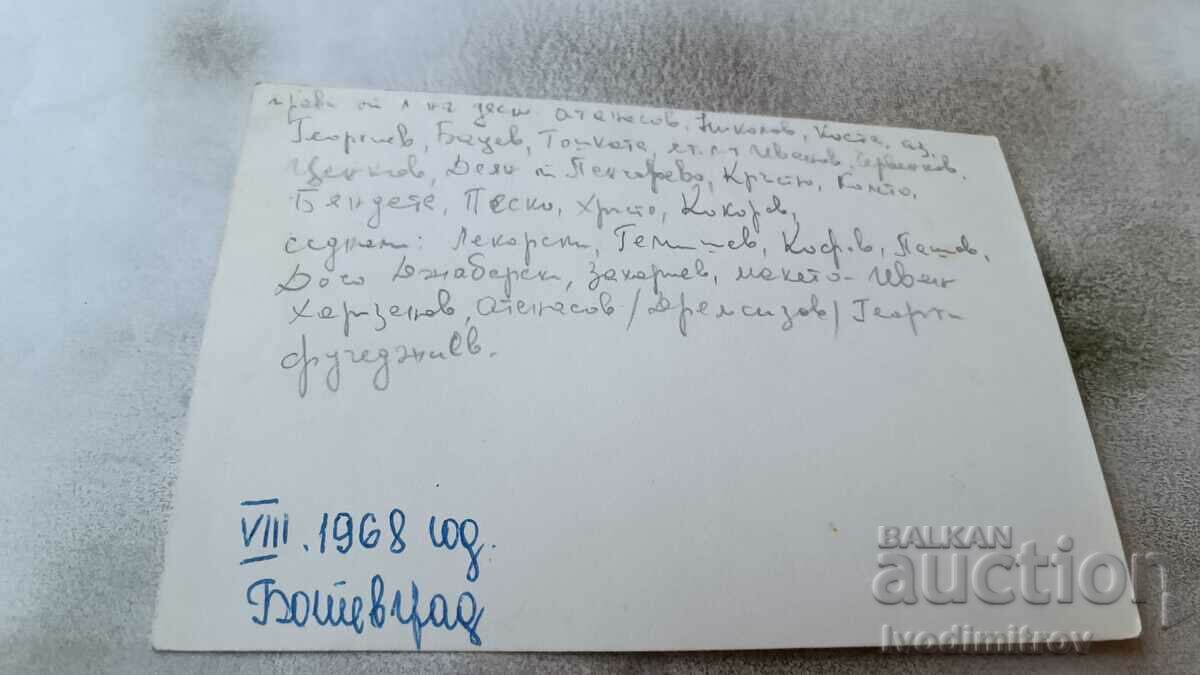 прави от л на десн. Атанасов, Николов, Коста, аз,
Георгиев, Бацев, Тошката, ст. л-т Иванов, Червенков,
Ценков, Деян от Пенчарево, Кръстю, Комто,
Бяндета, Песко, Христо, Кокоров,
седнали: Лекарски, Геишев, Кофов, Пашов,
Дочо Джабарски, Захариев, майето - Иван
Харизанов, Атанасов /Дремсизов/ Георги
Фучеджиев.
VIII. 1968 год.
Ботевград
BALKAN
auction
Ivodimitrov